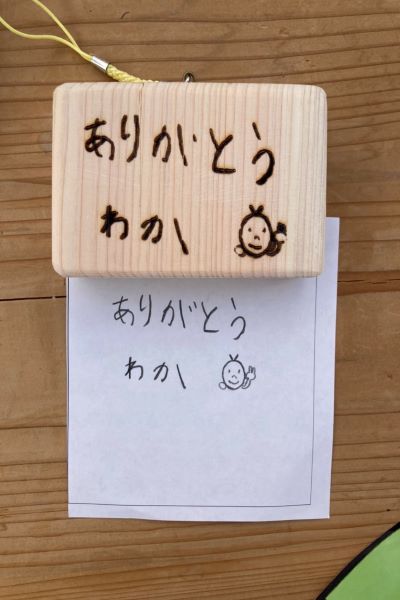 ありがとう
わかい
ありがとう
わかい